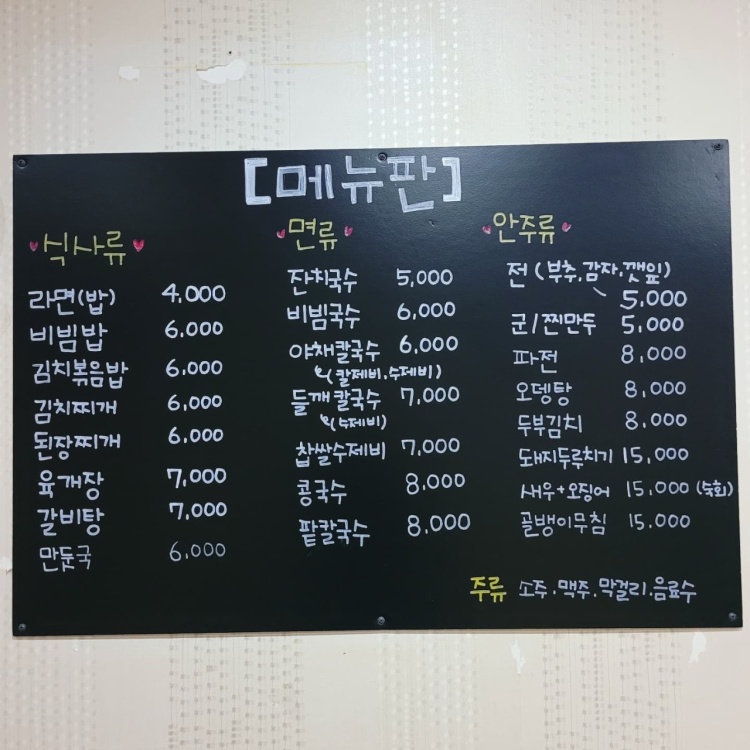 [메뉴판]
식사류
라면(밥) 4,000
비빔밥 6,000
김치볶음밥 6,000
김치찌개 6,000
된장찌개 6,000
육개장 7,000
갈비탕 7,000
만둣국 6,000
면류
잔치국수 5,000
비빔국수 6,000
야채칼국수 6,000
(칼제비,수제비)
들깨칼국수 7,000
(수제비)
찹쌀수제비 7,000
콩국수 8,000
팥칼국수 8,000
안주류
전(부추,감자,깻잎)
5,000
군/찐만두 5,000
파전 8,000
오뎅탕 8,000
두부김치 8,000
돼지두루치기 15,000
새우+오징어 15,000 (숙회)
골뱅이무침 15,000
주류 소주.맥주.막걸리.음료수